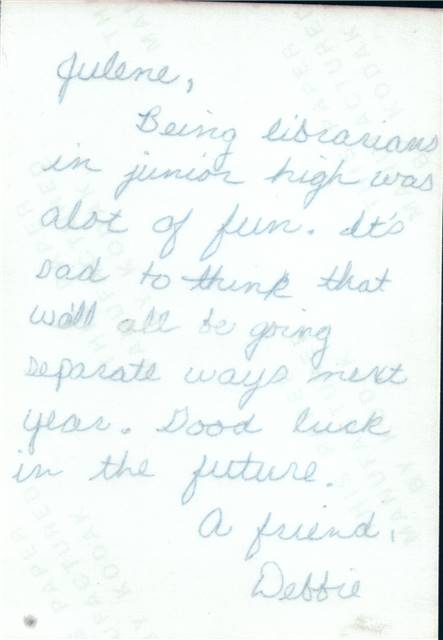 Julene,
Being librarians
in junior high was
alot of fun. It's
sad to think that
we'll all be going
separate ways next
year. Good luck
in the future.
A friend,
Debbie
THIS PAPER
MANUFACTURED
BY KODAK